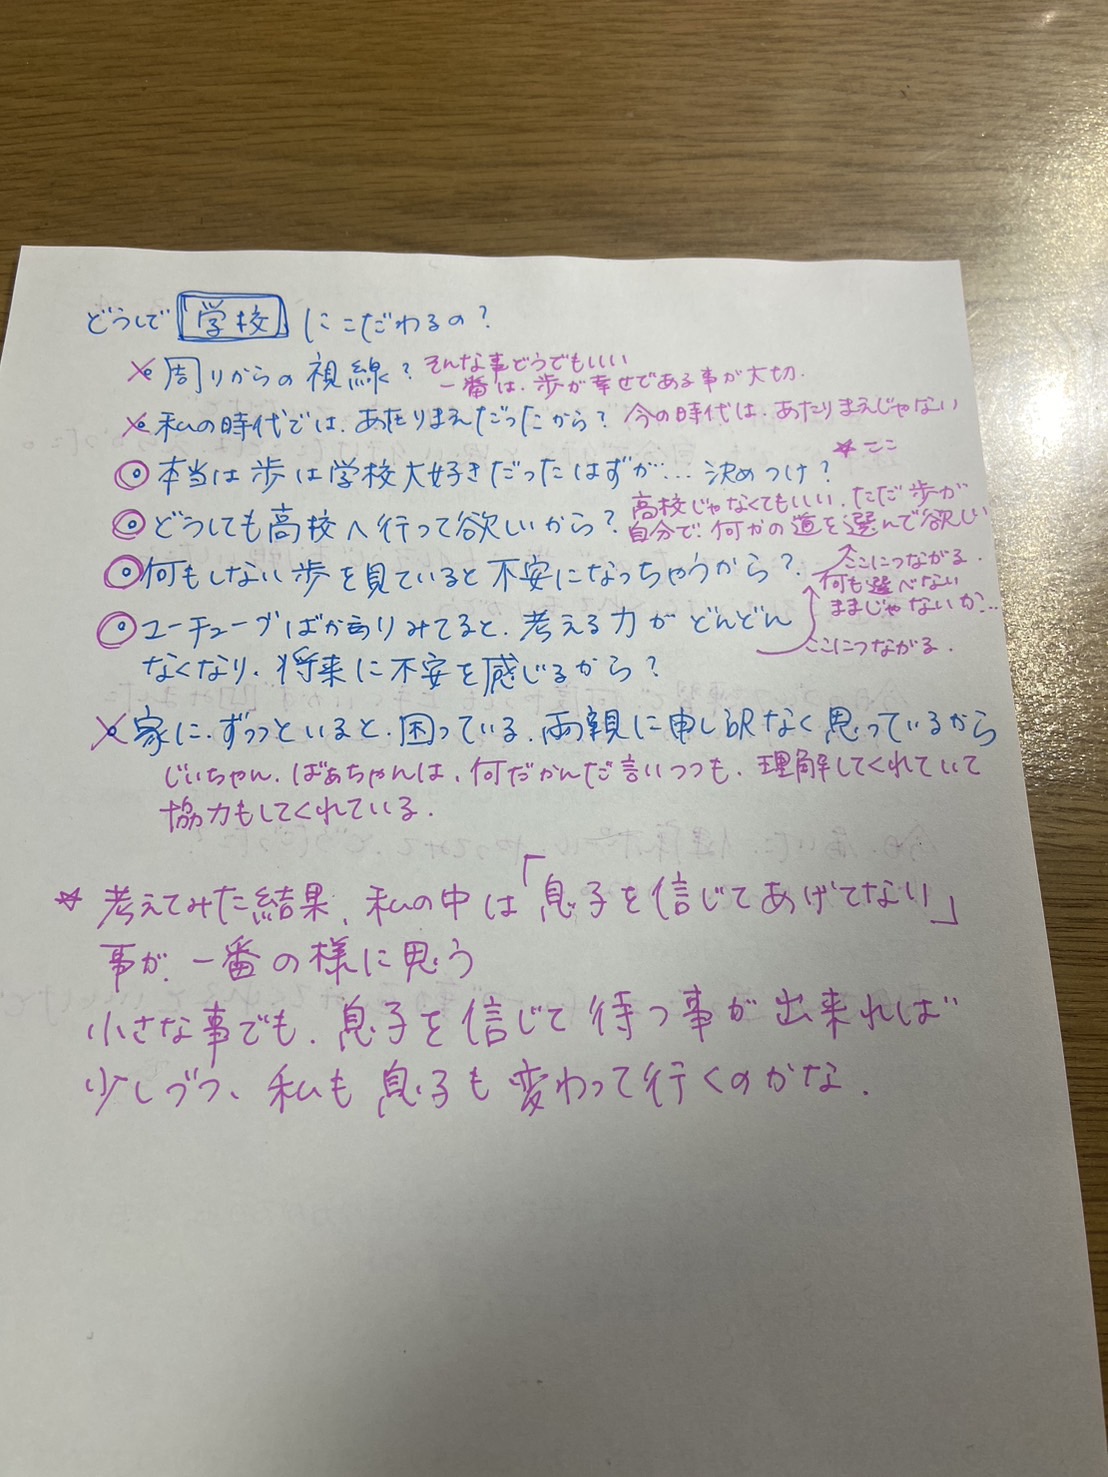 どうして「学校」にこだわるの?
×。周りからの視線? そんな事どうでもいい
一番は、歩が幸せである事が大切.
×。私の時代では、あたりまえだったから? 今の時代は、あたりまえじゃない
☆ここ
◎本当は歩は学校大好きだったはずが… 決めつけ?
高校じゃなくてもいい、ただ歩が
◎どうしても高校へ行って欲しいから? 自分で、何かの道を選んで欲しい
ここにつながる.
◎何もしない歩を見ていると不安になっちゃうから? 何も選べない
ままじゃないか…
◎ユーチューブばかりみてると、考える力がどんどん
ここにつながる.
なくなり、将来に不安を感じるから?
×。家に、ずっといると、困っている、両親に申し訳なく思っているから
じいちゃん、ばあちゃんは、何だかんだ言いつつも、理解してくれていて
協力もしてくれている.
☆考えてみた結果、私の中は「息子を信じてあげてない」
事が、一番の様に思う
小さな事でも、息子を信じて待つ事が出来れば
少しづつ、私も息子も変わって行くのかな.